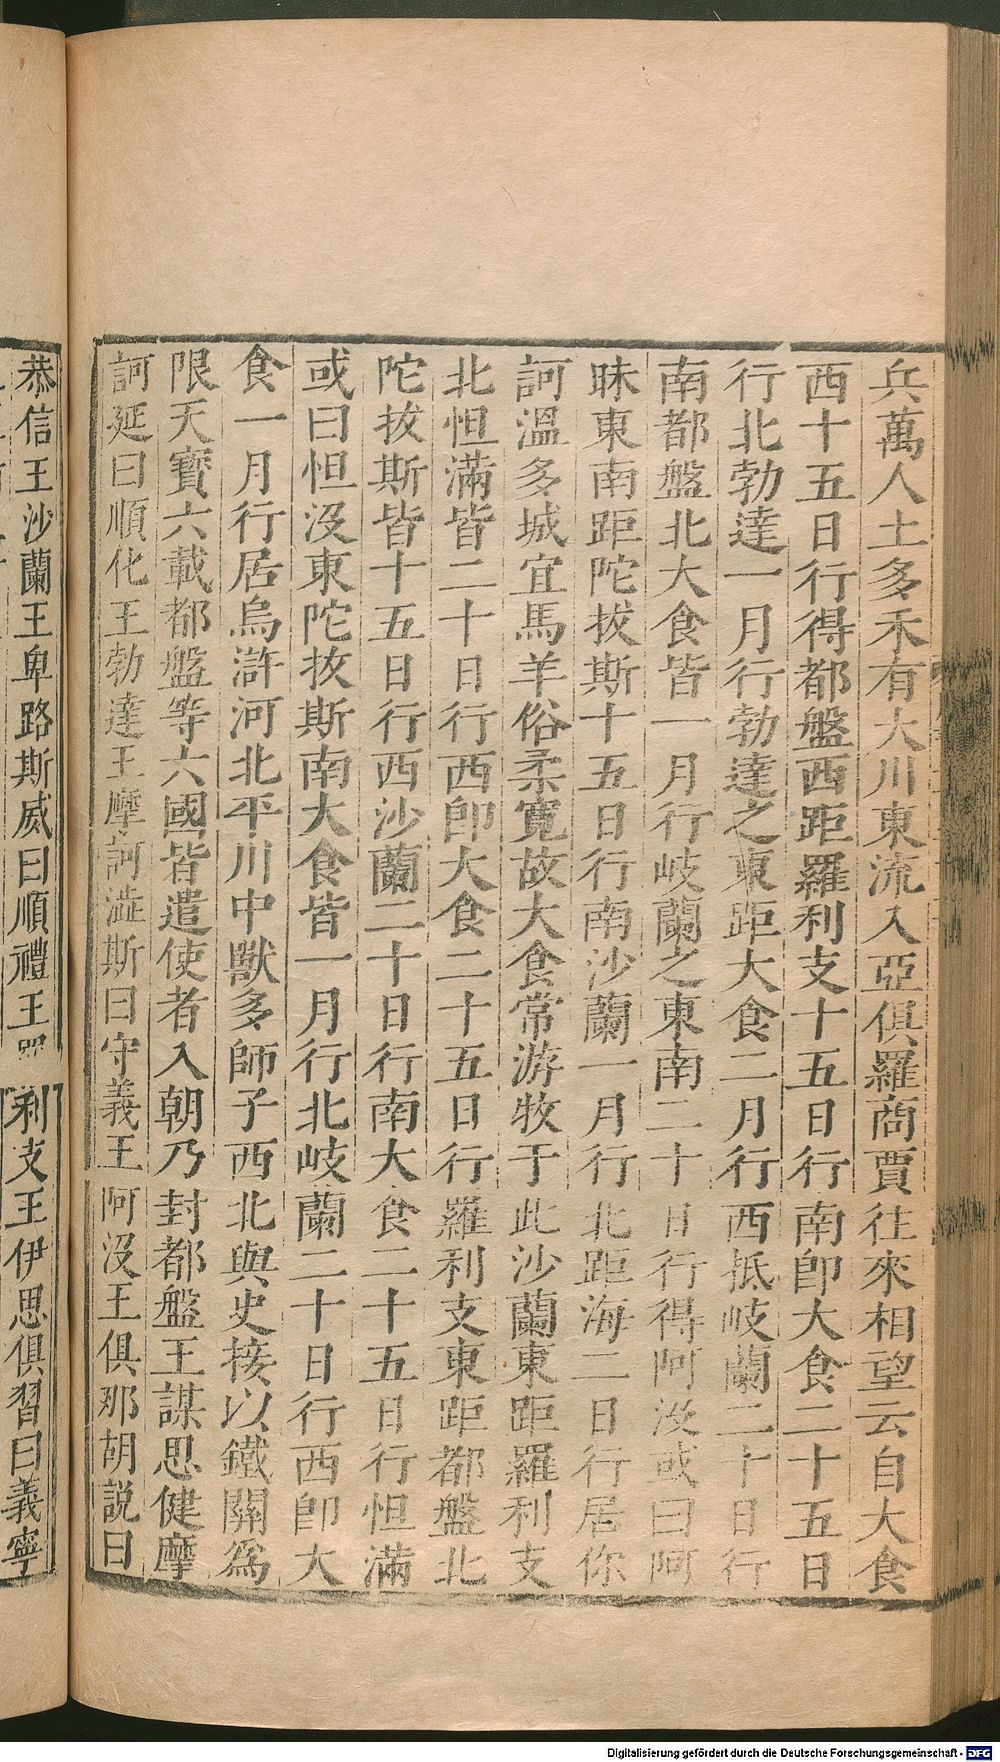 兵萬人土多禾有大川東流入亞俱羅商賈往來相望云自大食
西十五日行得都盤西距羅利支十五日行南卽大食二十五日
行北勃達一月行勃達之東距大食二月行西抵岐蘭二十日行
南都盤北大食皆一月行岐蘭之東南二十日行得阿沒或曰阿
昧東南距陀拔斯十五日行南沙蘭一月行北距海二日行居你
訶溫多城宜馬羊俗柔寬故大食常游牧于此沙蘭東距羅利支
北怛滿皆二十日行西卽大食二十五日行羅利支東距都盤北
陀拔斯皆十五日行西沙蘭二十日行南大食二十五日行怛滿
或曰怛沒東陀拔斯南大食皆一月行北岐蘭二十日行西卽大
食一月行居烏滸河北平川中獸多師子西北與史接以鐵關爲
限天寶六載都盤等六國皆遣使者入朝乃封都盤王謀思健摩
訶延曰順化王勃達王摩訶澁斯曰守義王阿沒王俱那胡說曰
恭信王沙蘭王卑路斯威曰順禮王
利支王伊思俱習曰義寧
Digitalisierung gefördert durch die Deutsche Forschungsgemeinschaft - DFG